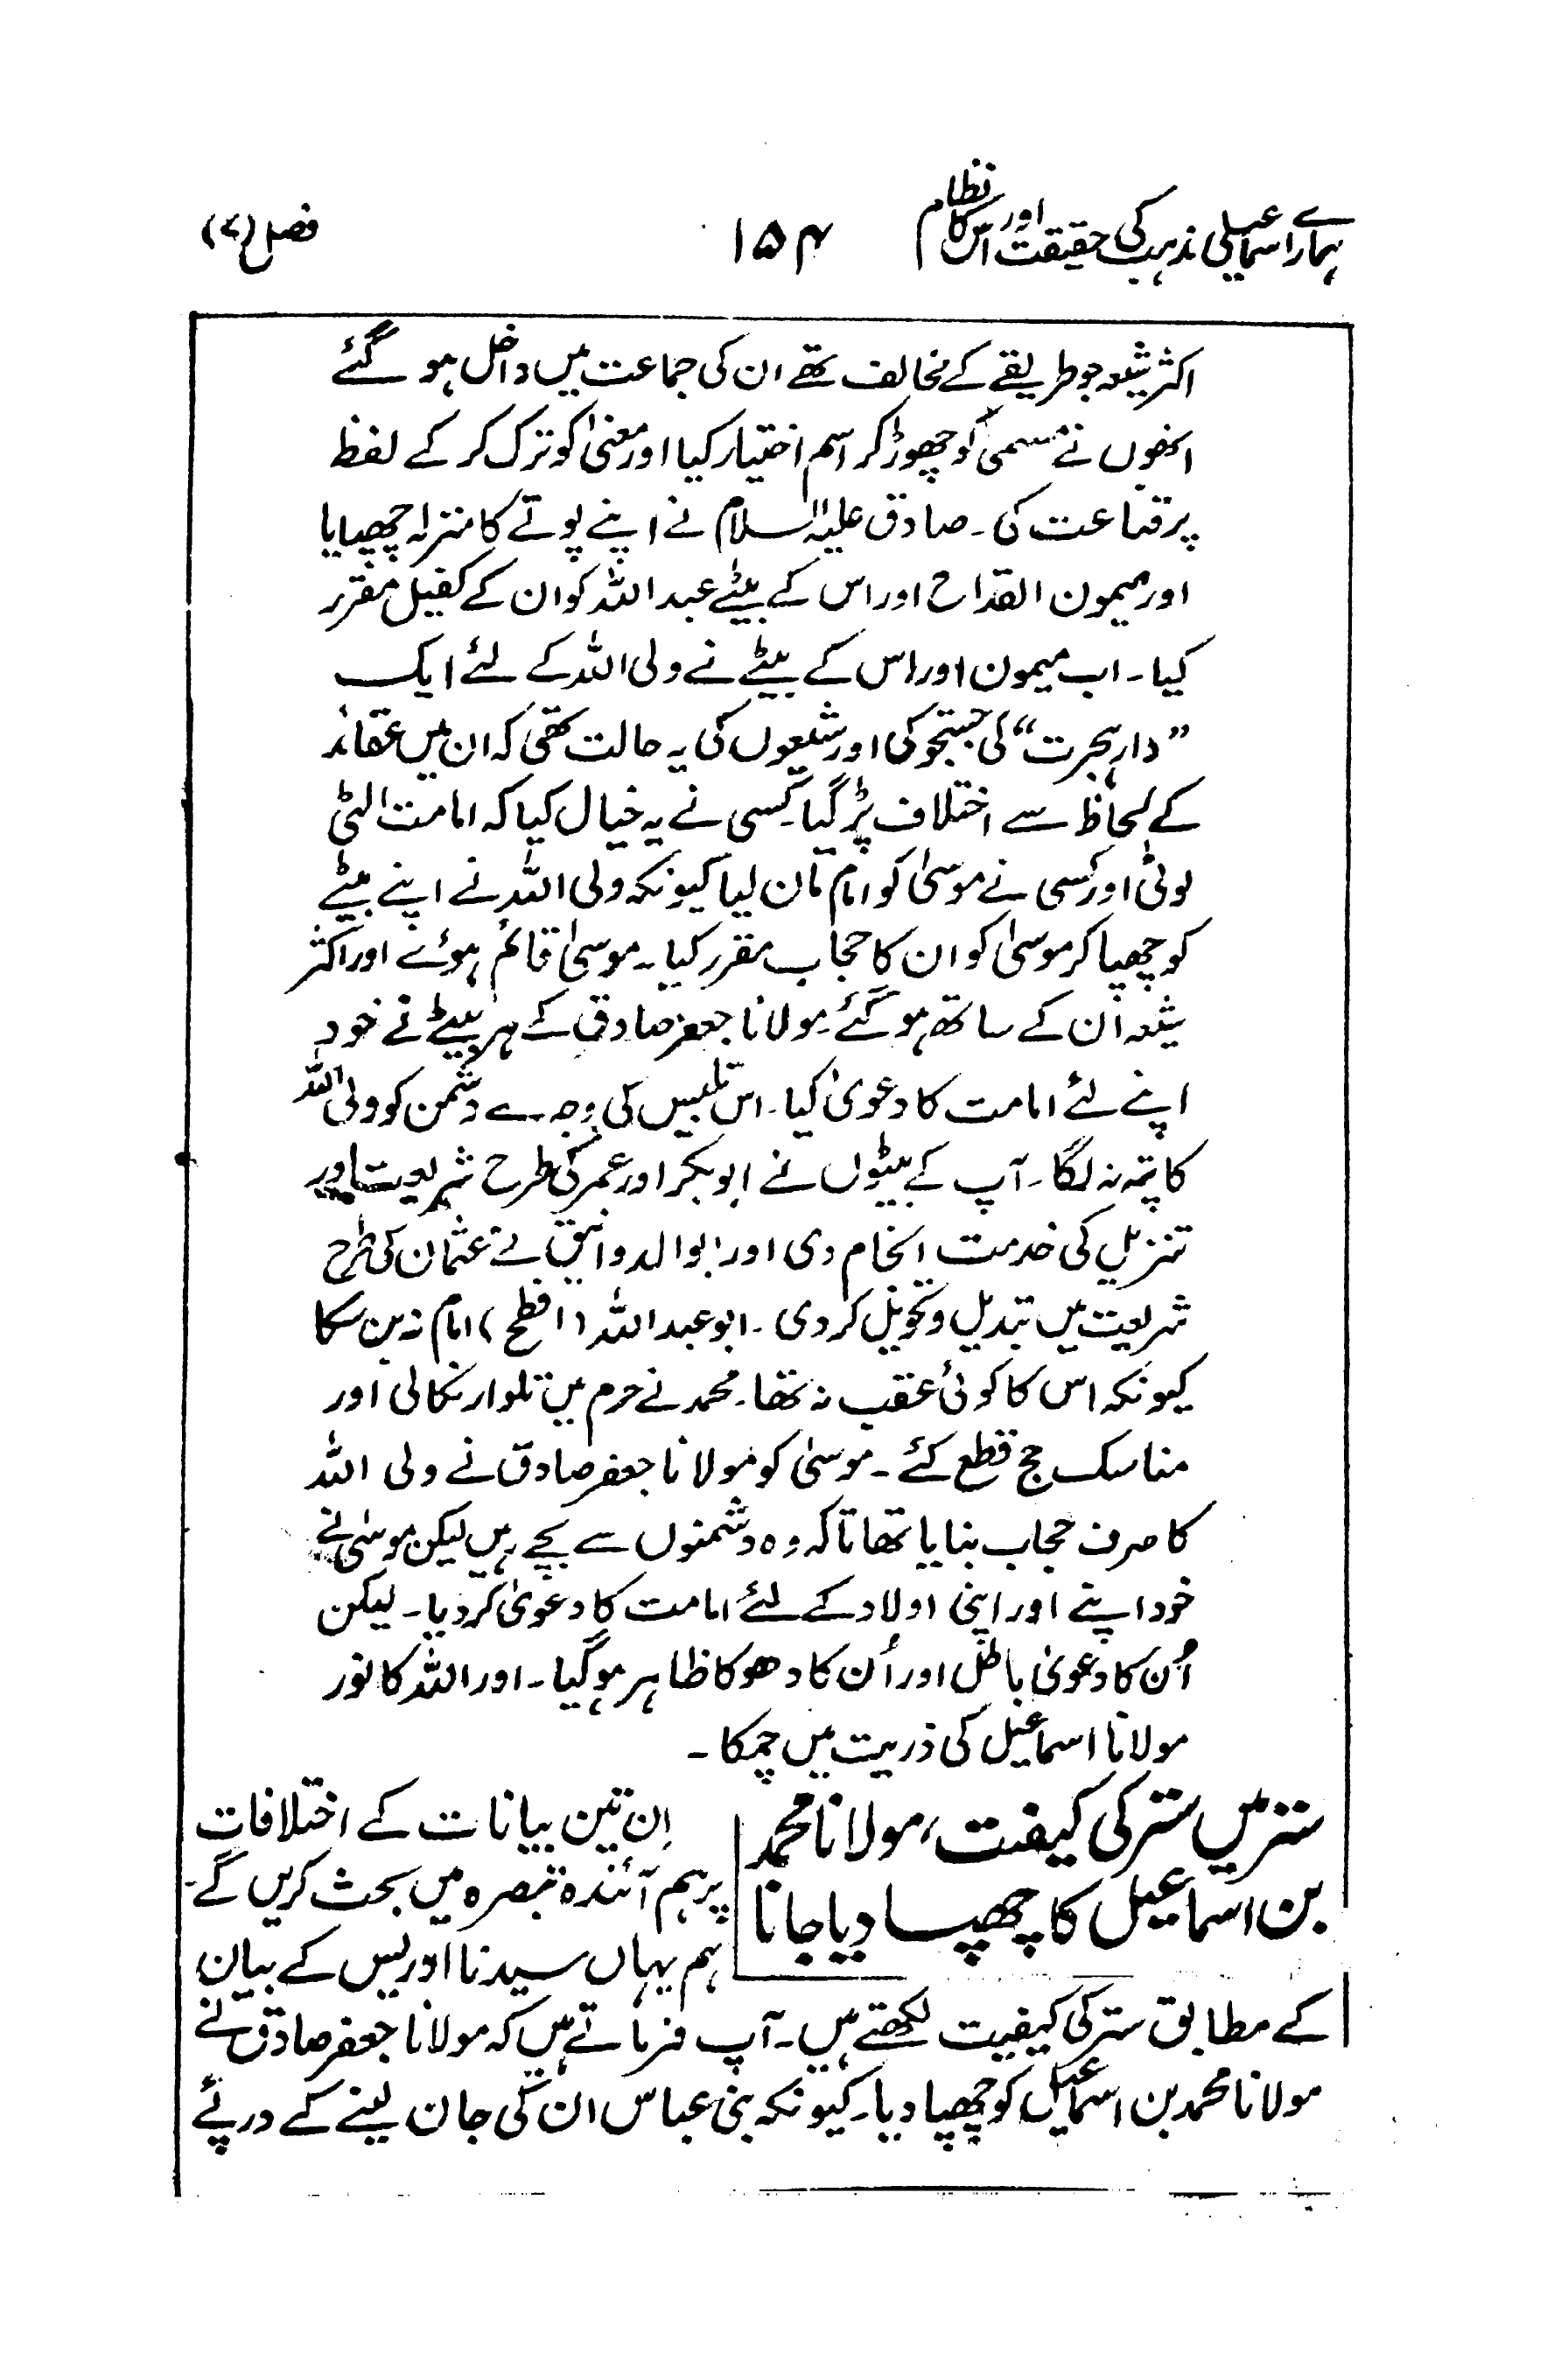 ہمارے اسماعیلی مذہب کی حقیقت اور اس کا نظام ۱۵۴ فصل (۷)
اکثر شیعہ جو طریقے کے مخالف تھے ان کی جماعت میں داخل ہو گئے
انھوں نے مسمیٰ کو چھوڑ کر اسم اختیار کیا اور معنیٰ کو ترک کر کے لفظ
پر قناعت کی۔ صادق علیہ السلام نے اپنے پوتے کا منزلہ چھپایا
اور میمون القداح اور اس کے بیٹے عبداللہ کو ان کے کفیل مقرر
کیا۔ اب میمون اور اس کے بیٹے نے ولی اللہ کے لئے ایک
”دار ہجرت“ کی جستجو کی اور شیعوں کی یہ حالت تھی کہ ان میں عقائد
کے لحاظ سے اختلاف پڑ گیا۔ کسی نے یہ خیال کیا کہ امامت الٹی
لوٹی اور کسی نے موسیٰ کو امام مان لیا کیونکہ ولی اللہ نے اپنے بیٹے
کو چھپا کر موسیٰ کو ان کا حجاب مقرر کیا۔ موسیٰ قائم ہوئے اور اکثر
شیعہ اُن کے ساتھ ہو گئے۔ مولانا جعفر صادق کے ہر بیٹے نے خود
اپنے لئے امامت کا دعویٰ کیا۔ اس تلبیس کی وجہ سے دشمن کو ولی اللہ
کا پتہ نہ لگا۔ آپ کے بیٹوں نے ابوبکر اور عمر کی طرح شریعت اور
تنزیل کی خدمت انجام دی اور ابوالدوانیق نے عثمان کی طرح
شریعت میں تبدیل و تحویل کر دی۔ ابو عبداللہ (افطح) امام نہ بن سکا
کیونکہ اس کا کوئی عقب نہ تھا۔ محمد نے حرم میں تلوار نکالی اور
مناسک حج قطع کئے۔ موسیٰ کو مولانا جعفر صادق نے ولی اللہ
کا صرف حجاب بنایا تھا تاکہ وہ دشمنوں سے بچے رہیں لیکن موسیٰ نے
خود اپنے اور اپنی اولاد کے لئے امامت کا دعویٰ کر دیا۔ لیکن
اُن کا دعویٰ باطل اور اُن کا دھوکا ظاہر ہو گیا۔ اور اللہ کا نور
مولانا اسماعیل کی ذریت میں چمکا۔
ستر میں ستر کی کیفیت، مولانا محمد
بن اسماعیل کا چھپا دیا جانا
اِن تین بیانات کے اختلافات
پر ہم آئندہ تبصرہ میں بحث کریں گے۔
ہم یہاں سیدنا ادریس کے بیان
کے مطابق ستر کی کیفیت لکھتے ہیں۔ آپ فرماتے ہیں کہ مولانا جعفر صادق نے
مولانا محمد بن اسماعیل کو چھپا دیا۔ کیونکہ بنی عباس ان کی جان لینے کے درپئے